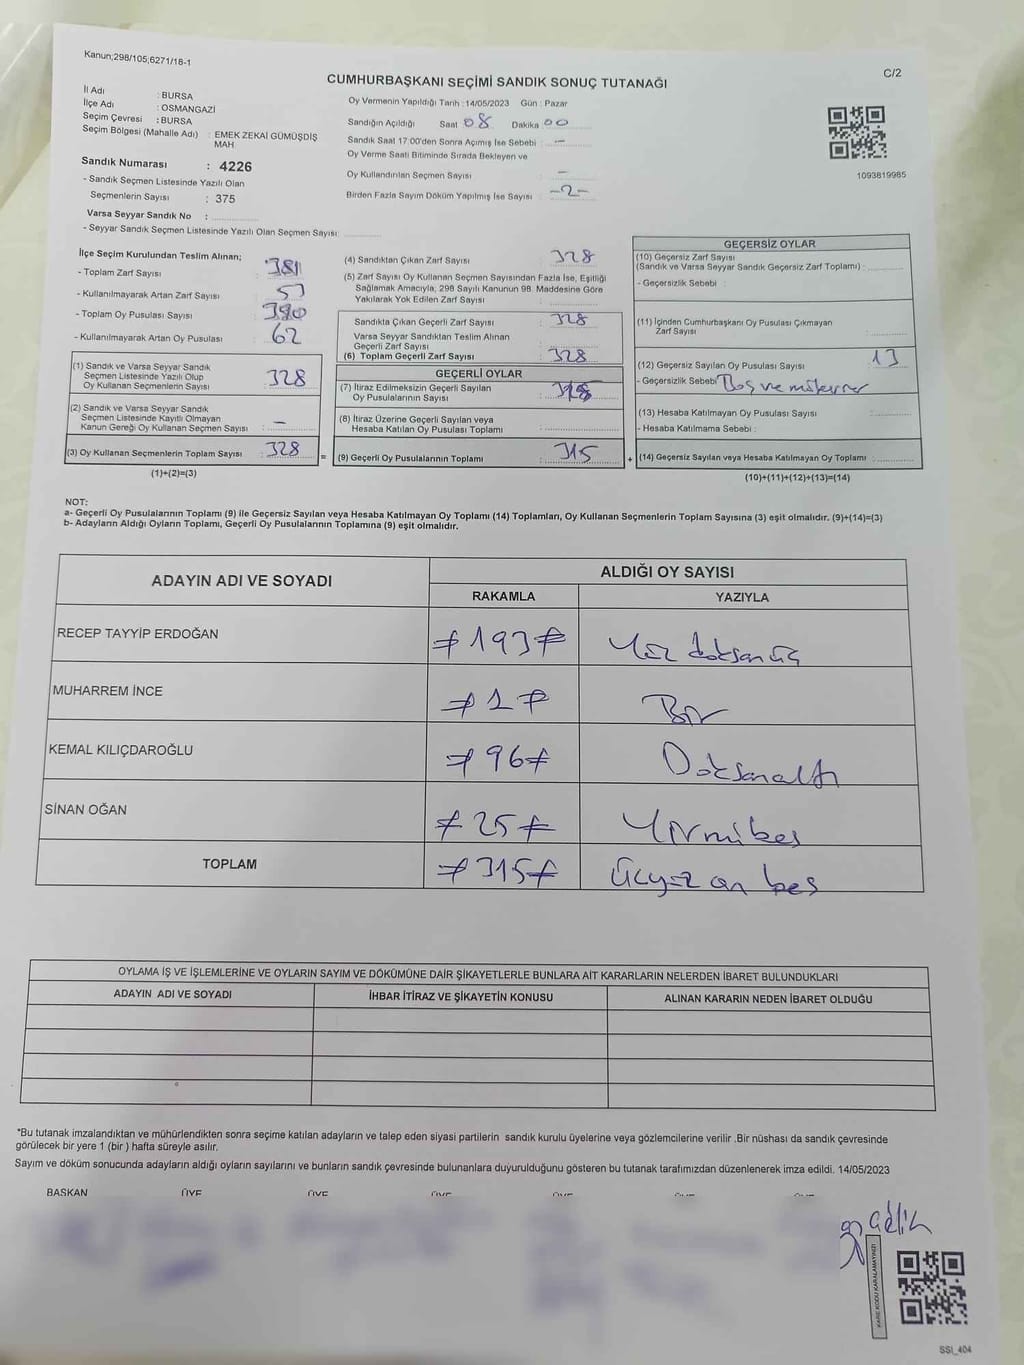 Kanun;298/105;6271/18-1
C/2
CUMHURBAŞKANI SEÇİMİ SANDIK SONUÇ TUTANAĞI
İl Adı : BURSA
İlçe Adı : OSMANGAZİ
Seçim Çevresi : BURSA
Seçim Bölgesi (Mahalle Adı) : EMEK ZEKAİ GÜMÜŞDİŞ
MAH.
Sandık Numarası : 4226
- Sandık Seçmen Listesinde Yazılı Olan
Seçmenlerin Sayısı : 375
Varsa Seyyar Sandık No :
- Seyyar Sandık Seçmen Listesinde Yazılı Olan Seçmen Sayısı:
Oy Vermenin Yapıldığı Tarih :14/05/2023 Gün : Pazar
Sandığın Açıldığı Saat 08 Dakika 00
Sandık Saat 17:00'den Sonra Açımış İse Sebebi : -
Oy Verme Saati Bitiminde Sırada Bekleyen ve
Oy Kullandırılan Seçmen Sayısı : -
Birden Fazla Sayım Döküm Yapılmış İse Sayısı : -2-
1093819985
İlçe Seçim Kurulundan Teslim Alınan;
- Toplam Zarf Sayısı : 381
- Kullanılmayarak Artan Zarf Sayısı : 53
- Toplam Oy Pusulası Sayısı : 390
- Kullanılmayarak Artan Oy Pusulası : 62
(1) Sandık ve Varsa Seyyar Sandık
Seçmen Listesinde Yazılı Olup
Oy Kullanan Seçmenlerin Sayısı : 328
(2) Sandık ve Varsa Seyyar Sandık
Seçmen Listesinde Kayıtlı Olmayan
Kanun Gereği Oy Kullanan Seçmen Sayısı : -
(3) Oy Kullanan Seçmenlerin Toplam Sayısı : 328
(1)+(2)=(3)
(4) Sandıktan Çıkan Zarf Sayısı : 328
(5) Zarf Sayısı Oy Kullanan Seçmen Sayısından Fazla İse, Eşitliği
Sağlamak Amacıyla; 298 Sayılı Kanunun 98. Maddesine Göre
Yakılarak Yok Edilen Zarf Sayısı :
Sandıkta Çıkan Geçerli Zarf Sayısı : 328
Varsa Seyyar Sandıktan Teslim Alınan
Geçerli Zarf Sayısı :
(6) Toplam Geçerli Zarf Sayısı : 328
GEÇERLİ OYLAR
(7) İtiraz Edilmeksizin Geçerli Sayılan
Oy Pusulalarının Sayısı :
(8) İtiraz Üzerine Geçerli Sayılan veya
Hesaba Katılan Oy Pusulası Toplamı :
= (9) Geçerli Oy Pusulalarının Toplamı : 315
GEÇERSİZ OYLAR
(10) Geçersiz Zarf Sayısı
(Sandık ve Varsa Seyyar Sandık Geçersiz Zarf Toplamı) :
- Geçersizlik Sebebi :
(11) İçinden Cumhurbaşkanı Oy Pusulası Çıkmayan
Zarf Sayısı :
(12) Geçersiz Sayılan Oy Pusulası Sayısı : 13
- Geçersizlik Sebebi : Boş ve
(13) Hesaba Katılmayan Oy Pusulası Sayısı :
- Hesaba Katılmama Sebebi :
+ (14) Geçersiz Sayılan veya Hesaba Katılmayan Oy Toplamı :
(10)+(11)+(12)+(13)=(14)
NOT:
a- Geçerli Oy Pusulalarının Toplamı (9) ile Geçersiz Sayılan veya Hesaba Katılmayan Oy Toplamı (14) Toplamları, Oy Kullanan Seçmenlerin Toplam Sayısına (3) eşit olmalıdır. (9)+(14)=(3)
b- Adayların Aldığı Oyların Toplamı, Geçerli Oy Pusulalarının Toplamına (9) eşit olmalıdır.
ADAYIN ADI VE SOYADI ALDIĞI OY SAYISI
RAKAMLA YAZIYLA
RECEP TAYYİP ERDOĞAN ≠193≠ Yüz doksan üç
MUHARREM İNCE ≠1≠ Bir
KEMAL KILIÇDAROĞLU ≠96≠ Doksanaltı
SİNAN OĞAN ≠25≠ Yirmibeş
TOPLAM ≠315≠ Üçyüz on beş
OYLAMA İŞ VE İŞLEMLERİNE VE OYLARIN SAYIM VE DÖKÜMÜNE DAİR ŞİKAYETLERLE BUNLARA AİT KARARLARIN NELERDEN İBARET BULUNDUKLARI
ADAYIN ADI VE SOYADI İHBAR İTİRAZ VE ŞİKAYETİN KONUSU ALINAN KARARIN NEDEN İBARET OLDUĞU
*Bu tutanak imzalandıktan ve mühürlendikten sonra seçime katılan adayların ve talep eden siyasi partilerin sandık kurulu üyelerine veya gözlemcilerine verilir .Bir nüshası da sandık çevresinde
görülecek bir yere 1 (bir ) hafta süreyle asılır.
Sayım ve döküm sonucunda adayların aldığı oyların sayılarını ve bunların sandık çevresinde bulunanlara duyurulduğunu gösteren bu tutanak tarafımızdan düzenlenerek imza edildi. 14/05/2023
BAŞKAN ÜYE ÜYE ÜYE ÜYE ÜYE ÜYE
KARE KODU KARALAMAYINIZ!
SSİ_404